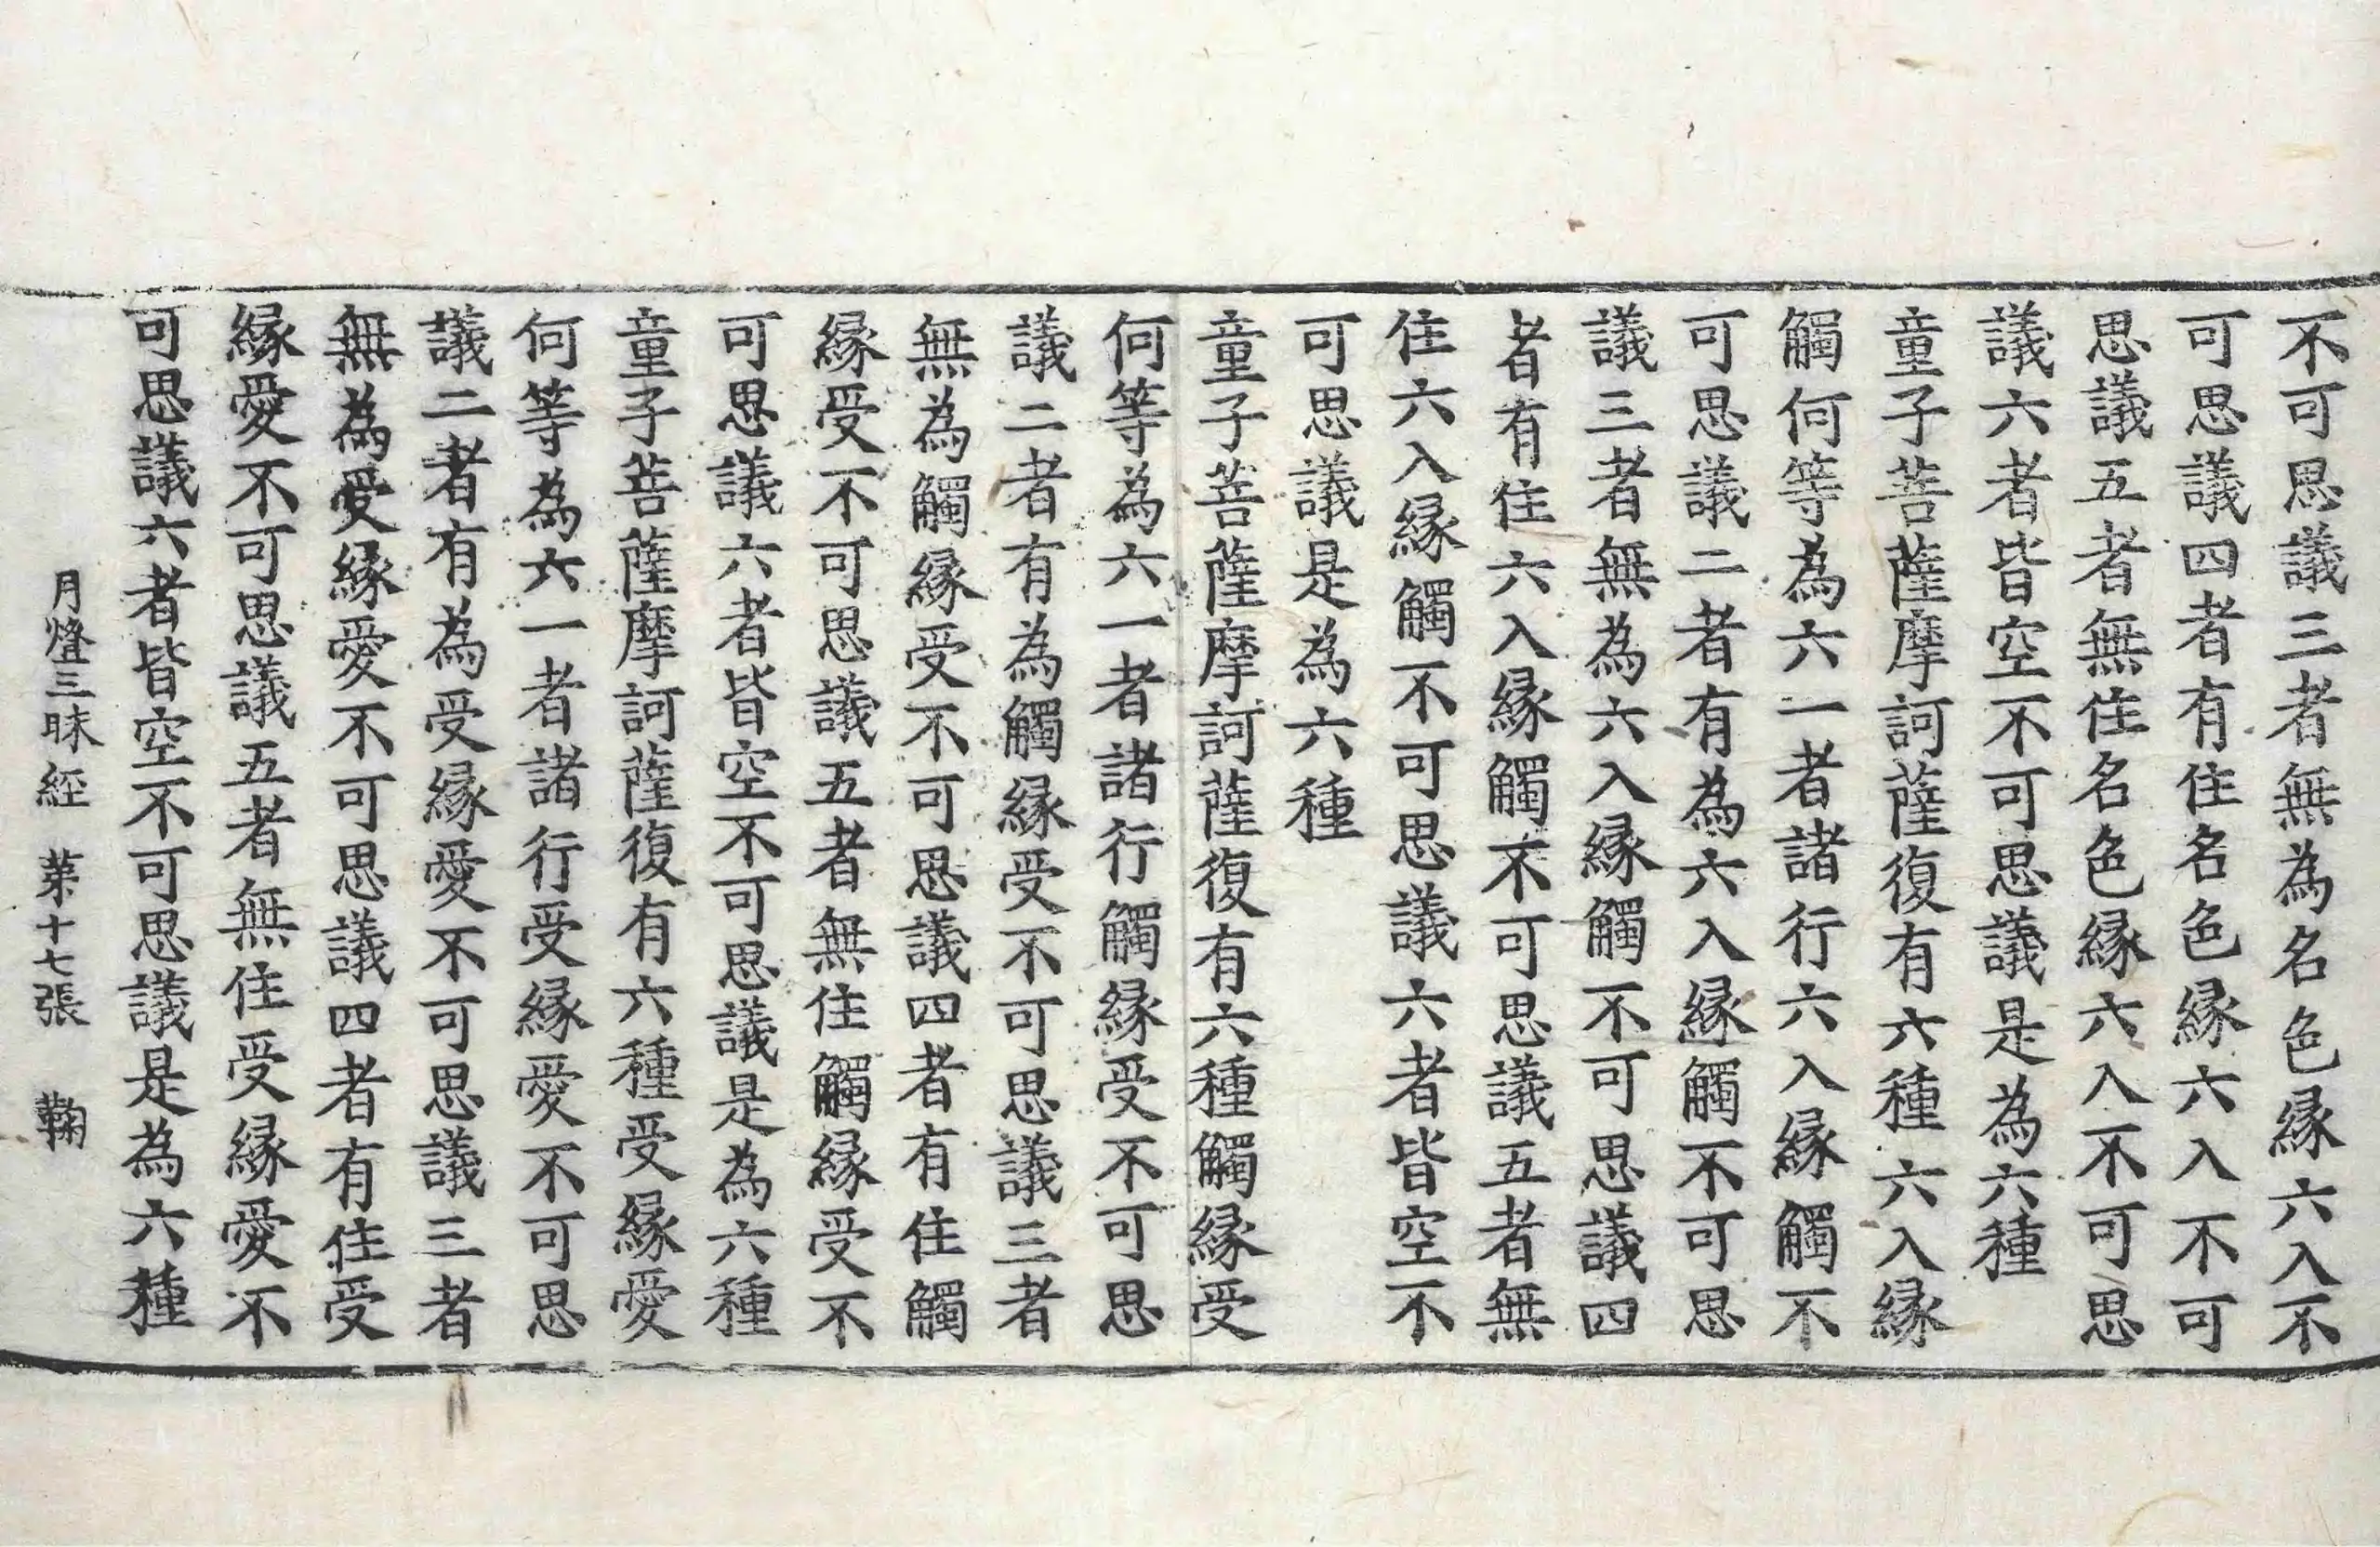 不可思議三者無為名色縁六入不
可思議四者有住名色縁六入不可
思議五者無住名色縁六入不可思
議六者皆空不可思議是為六種
童子菩薩摩訶薩復有六種六入縁
觸何等為六一者諸行六入縁觸不
可思議二者有為六入縁觸不可思
議三者無為六入縁觸不可思議四
者有住六入縁觸不可思議五者無
住六入縁觸不可思議六者皆空不
可思議是為六種
童子菩薩摩訶薩復有六種觸縁受
何等為六一者諸行觸縁受不可思
議二者有為觸縁受不可思議三者
無為觸縁受不可思議四者有住觸
縁受不可思議五者無住觸縁受不
可思議六者皆空不可思議是為六種
童子菩薩摩訶薩復有六種受縁愛
何等為六一者諸行受縁愛不可思
議二者有為受縁愛不可思議三者
無為受縁愛不可思議四者有住受
縁愛不可思議五者無住受縁愛不
可思議六者皆空不可思議是為六種
月燈三昧經 苐十七張 鞠